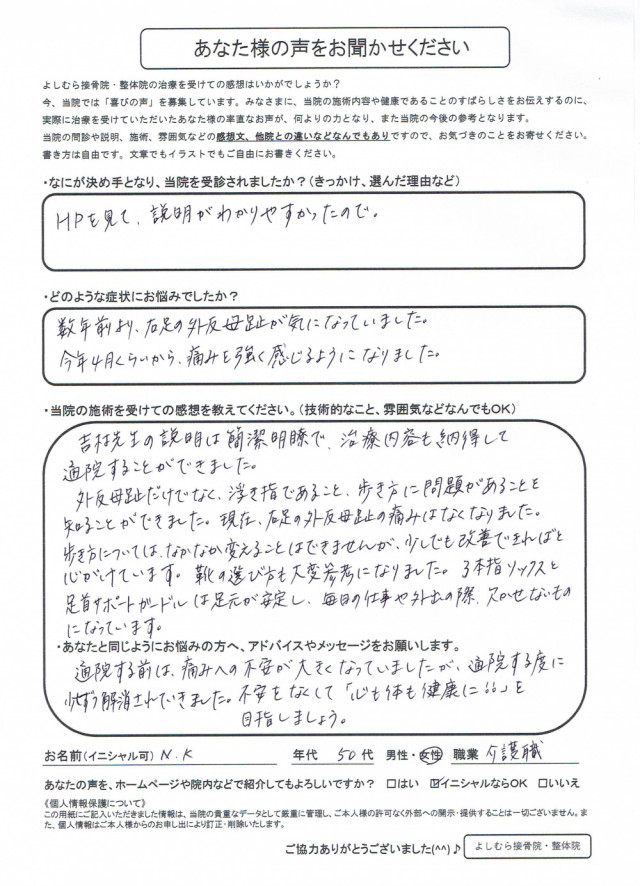 あなた様の声をお聞かせください
よしむら接骨院・整体院の治療を受けての感想はいかがでしょうか？
今、当院では「喜びの声」を募集しています。みなさまに、当院の施術内容や健康であることのすばらしさをお伝えするのに、
実際に治療を受けていただいたあなた様の率直なお声が、何よりの力となり、また当院の今後の参考となります。
当院の問診や説明、施術、雰囲気などの感想文、他院との違いなどなんでもありですので、お気づきのことをお寄せください。
書き方は自由です。文章でもイラストでもご自由にお書きください。
・なにが決め手となり、当院を受診されましたか？（きっかけ、選んだ理由など）
HPを見て、説明がわかりやすかったので。
・どのような症状にお悩みでしたか？
数年前より、右足の外反母趾が気になっていました。
今年4月くらいから、痛みを強く感じるようになりました。
・当院の施術を受けての感想を教えてください。（技術的なこと、雰囲気などなんでもOK）
吉村先生の説明は簡潔明瞭で、治療内容も納得して
通院することができました。
外反母趾だけでなく、浮き指であること、歩き方に問題があることを
知ることができました。現在、右足の外反母趾の痛みはなくなりました。
歩き方については、なかなか変えることはできませんが、少しでも改善できればと
心がけています。靴の選び方も大変参考になりました。3本指ソックスと
足首サポートガードルは足元が安定し、毎日の仕事や外出の際、欠かせないもの
になっています。
・あなたと同じようにお悩みの方へ、アドバイスやメッセージをお願いします。
通院する前は、痛みへの不安が大きくなっていましたが、通院する度に
少しずつ解消されていきました。不安をなくして「心も体も健康に!!」を
目指しましょう。
お名前（イニシャル可） N.K 年代 50代 男性・女性 職業 介護職
あなたの声を、ホームページや院内などで紹介してもよろしいですか？ □はい ☑イニシャルならOK □いいえ
《個人情報保護について》
この用紙にご記入いただきました情報は、当院の貴重なデータとして厳重に管理し、ご本人様の許可なく外部への開示・提供することは一切ございません。ま
た、個人情報はご本人様からのお申し出により訂正・削除いたします。
ご協力ありがとうございました(^^)♪ よしむら接骨院・整体院